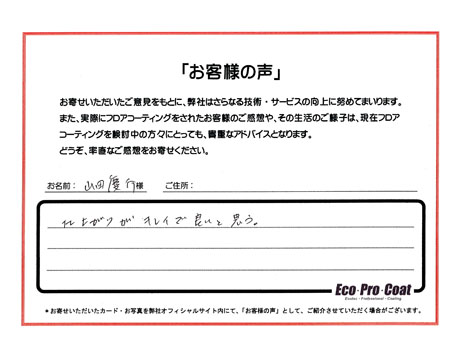 「お客様の声」
お寄せいただいたご意見をもとに、弊社はさらなる技術・サービスの向上に努めてまいります。
また、実際にフロアコーティングをされたお客様のご感想や、その生活のご様子は、現在フロア
コーティングを検討中の方々にとっても、貴重なアドバイスとなります。
どうぞ、率直なご感想をお寄せください。
お名前： 山田慶行様 ご住所：
仕上がりがキレイで良いと思う。
Eco・Pro・Coat
Ecolor・Professional・Coating
＊お寄せいただいたカード・お写真を弊社オフィシャルサイト内にて、「お客様の声」として、ご紹介させていただく場合がございます。